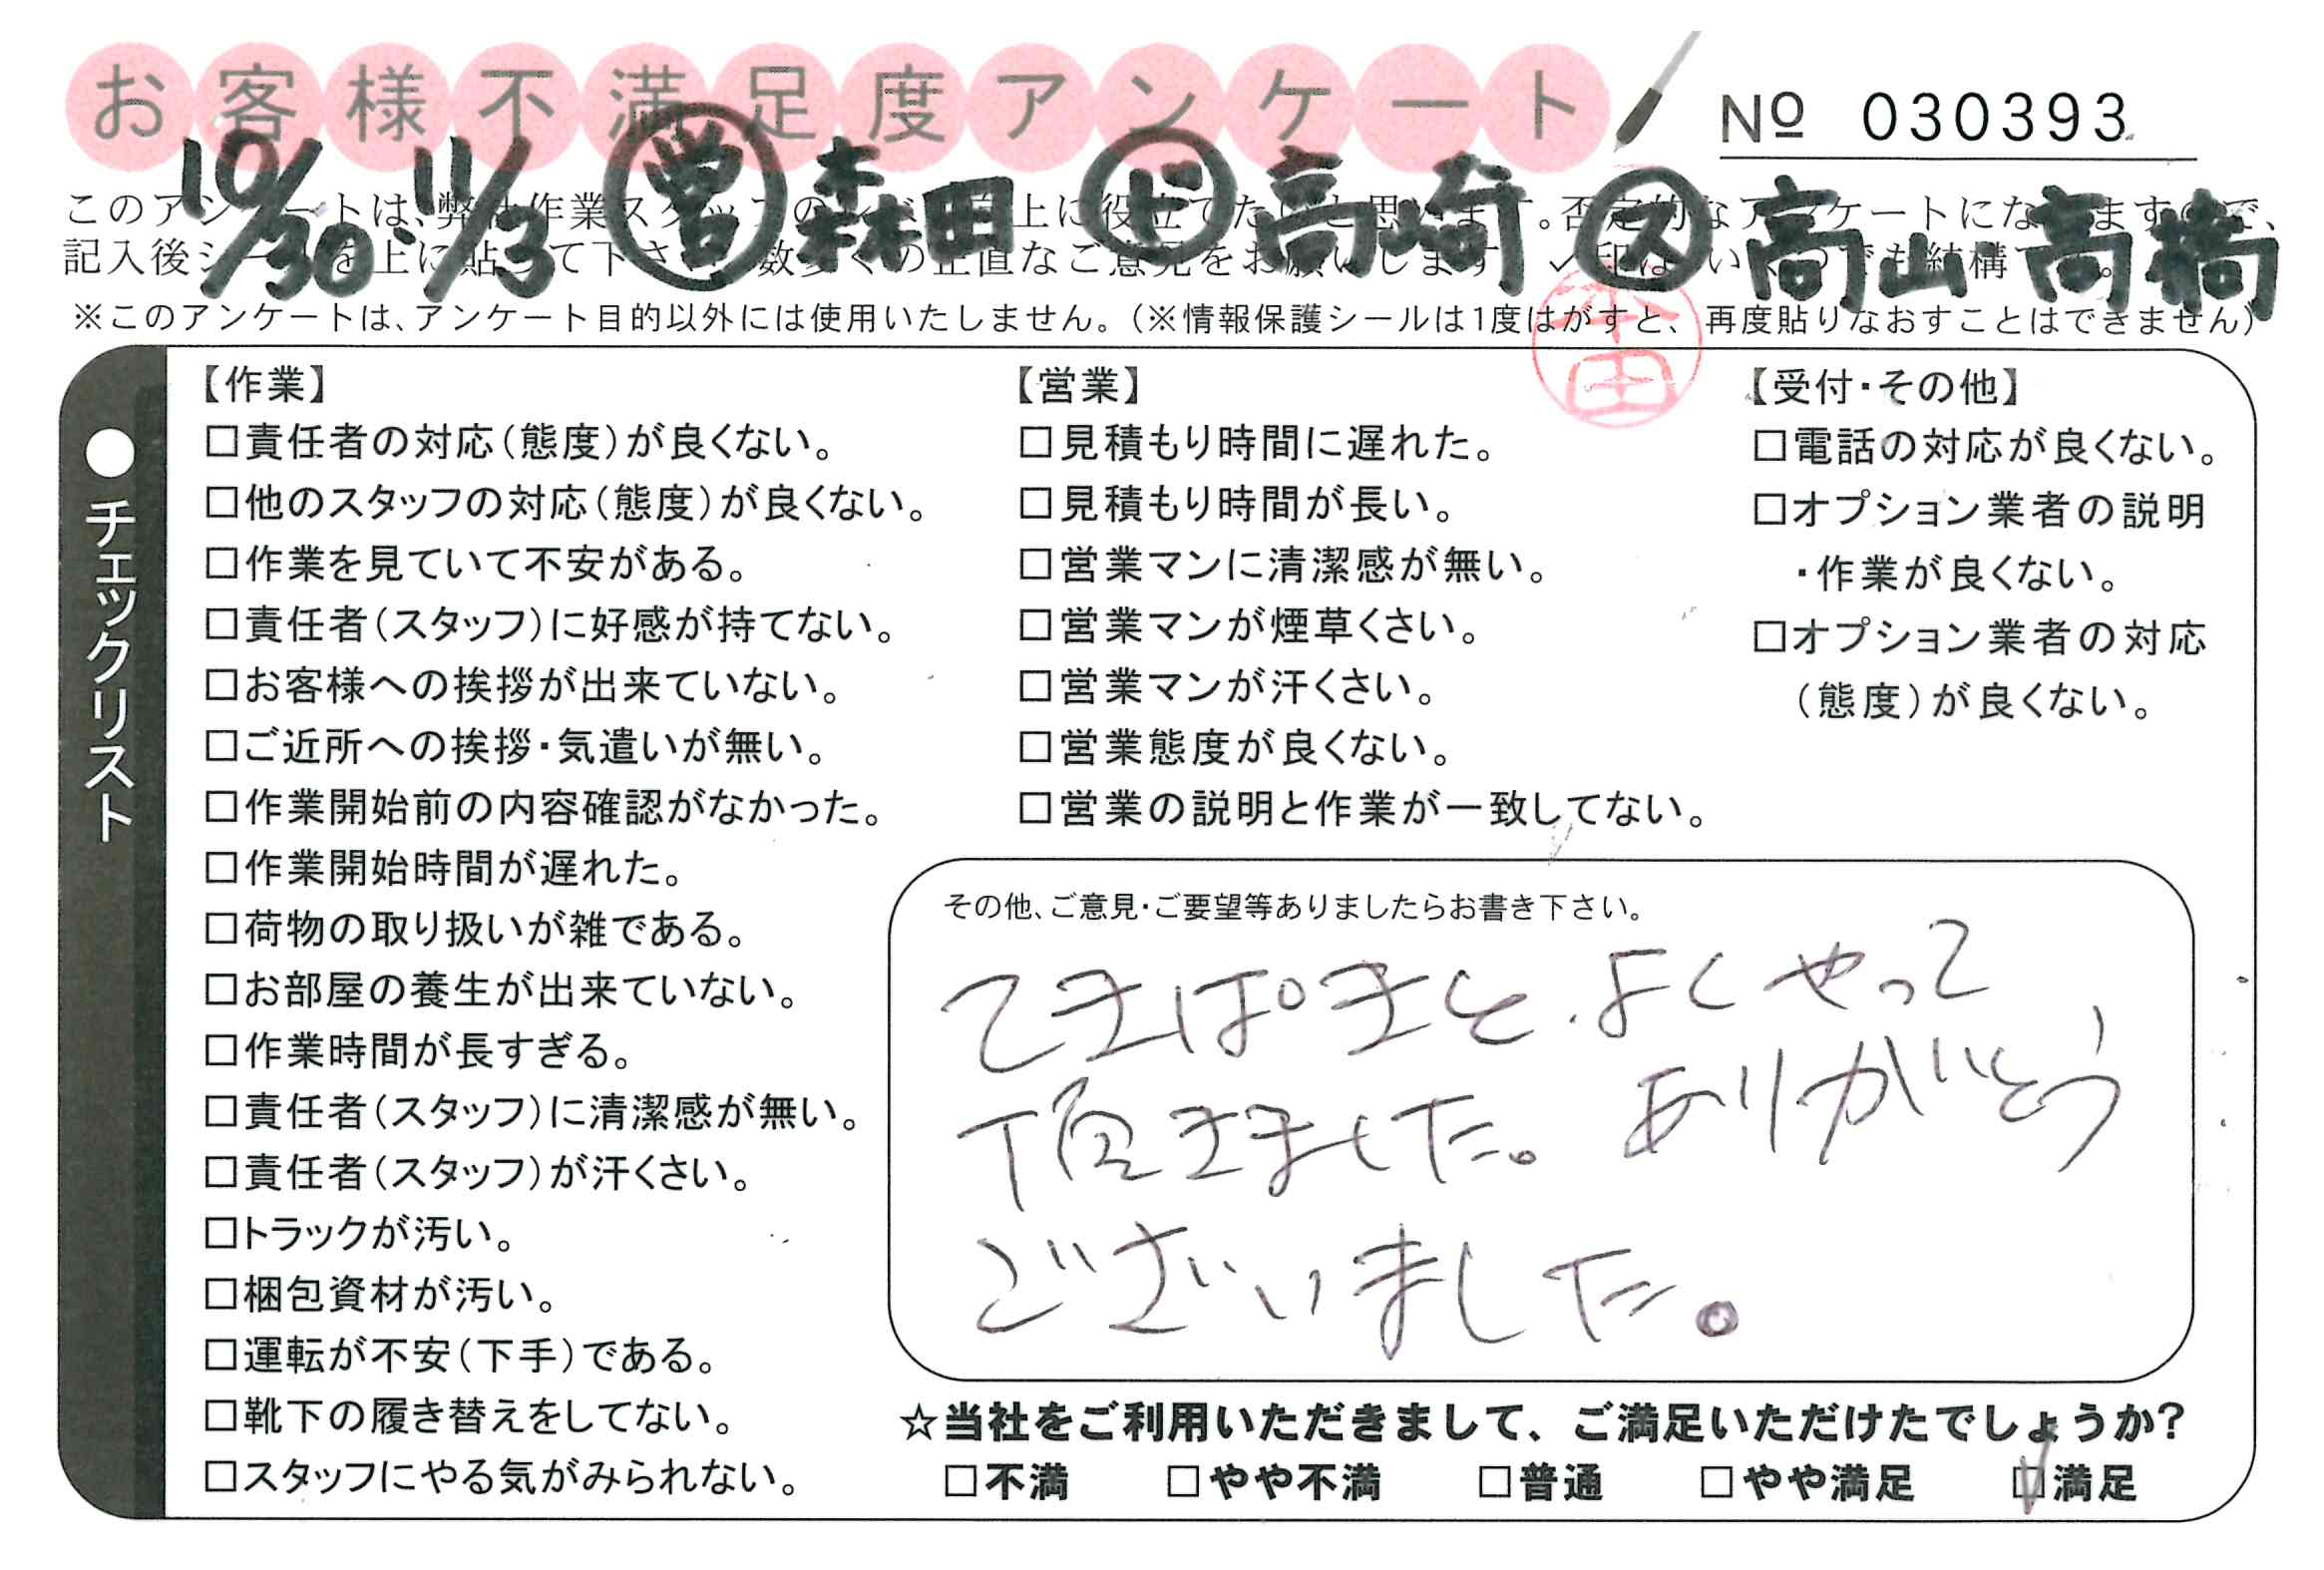 お客様不満足度アンケート
№ 030393
10/30・11/3 営 森田 ド 高崎 ス 高山 高橋
このアンケートは、弊社作業スタッフの 上に役立てたいと思います。否定的なアンケートになりますので、
記入後シールを上に貼って下さい。数多くの正直なご意見をお願いします。✓印はいくつでも結構です。
※このアンケートは、アンケート目的以外には使用いたしません。（※情報保護シールは1度はがすと、再度貼りなおすことはできません）
●チェックリスト
【作業】
□責任者の対応（態度）が良くない。
□他のスタッフの対応（態度）が良くない。
□作業を見ていて不安がある。
□責任者（スタッフ）に好感が持てない。
□お客様への挨拶が出来ていない。
□ご近所への挨拶・気遣いが無い。
□作業開始前の内容確認がなかった。
□作業開始時間が遅れた。
□荷物の取り扱いが雑である。
□お部屋の養生が出来ていない。
□作業時間が長すぎる。
□責任者（スタッフ）に清潔感が無い。
□責任者（スタッフ）が汗くさい。
□トラックが汚い。
□梱包資材が汚い。
□運転が不安（下手）である。
□靴下の履き替えをしてない。
□スタッフにやる気がみられない。
【営業】
□見積もり時間に遅れた。
□見積もり時間が長い。
□営業マンに清潔感が無い。
□営業マンが煙草くさい。
□営業マンが汗くさい。
□営業態度が良くない。
□営業の説明と作業が一致してない。
【受付・その他】
□電話の対応が良くない。
□オプション業者の説明
・作業が良くない。
□オプション業者の対応
（態度）が良くない。
その他、ご意見・ご要望等ありましたらお書き下さい。
てきぱきと、よくやって
頂きました。ありがとう
ございました。
☆当社をご利用いただきまして、ご満足いただけたでしょうか？
□不満 □やや不満 □普通 □やや満足 ☑満足